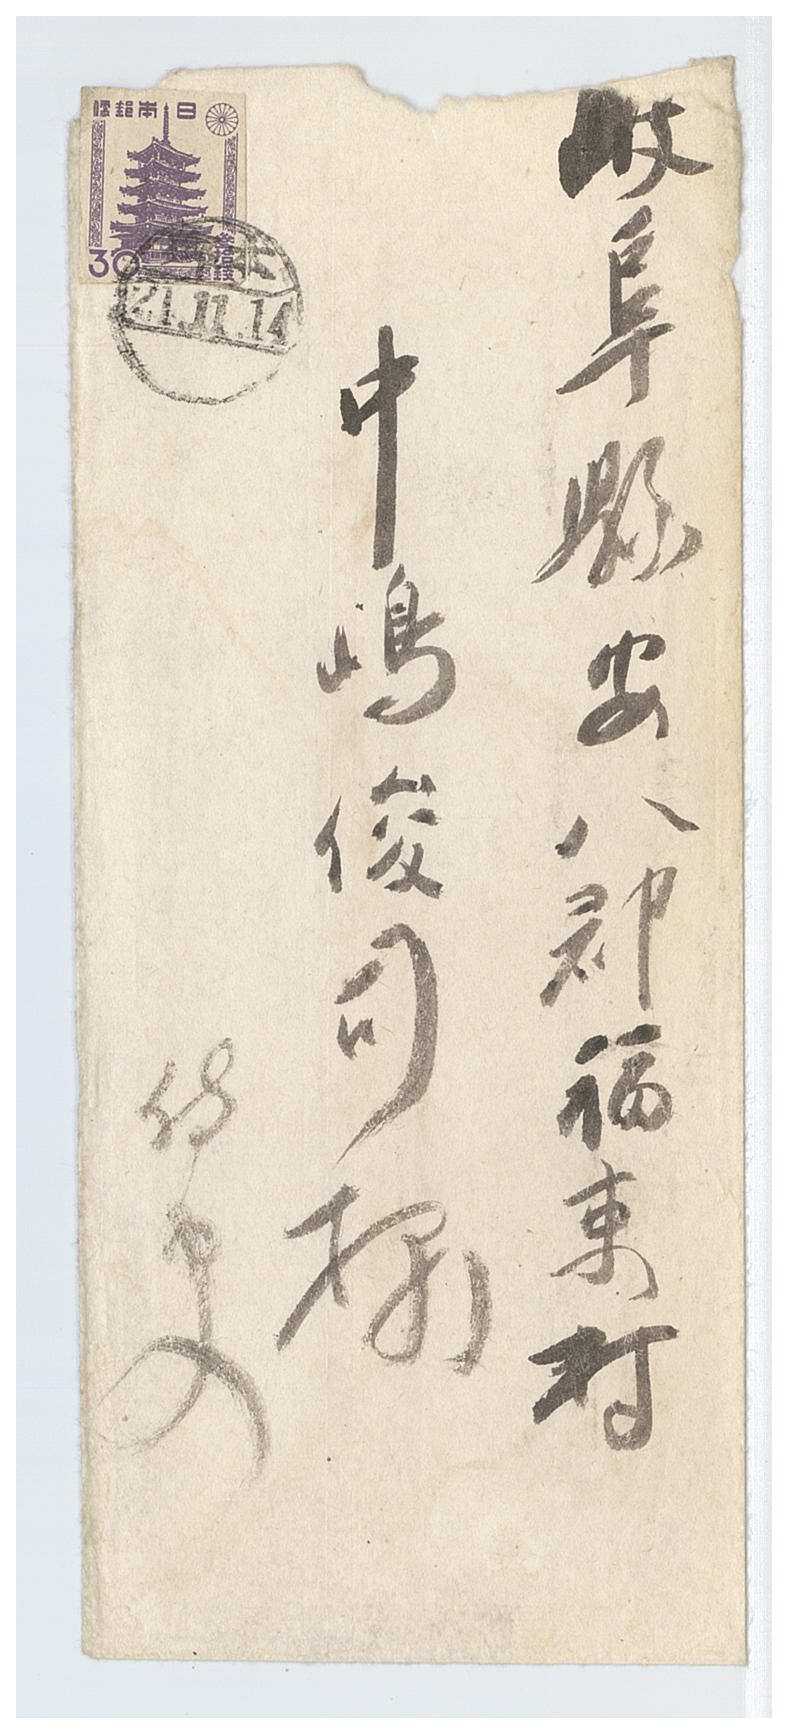 岐阜縣安八郡福東村
中嶋俊司様
侍史
日本郵便
参拾銭
30
21.11.14